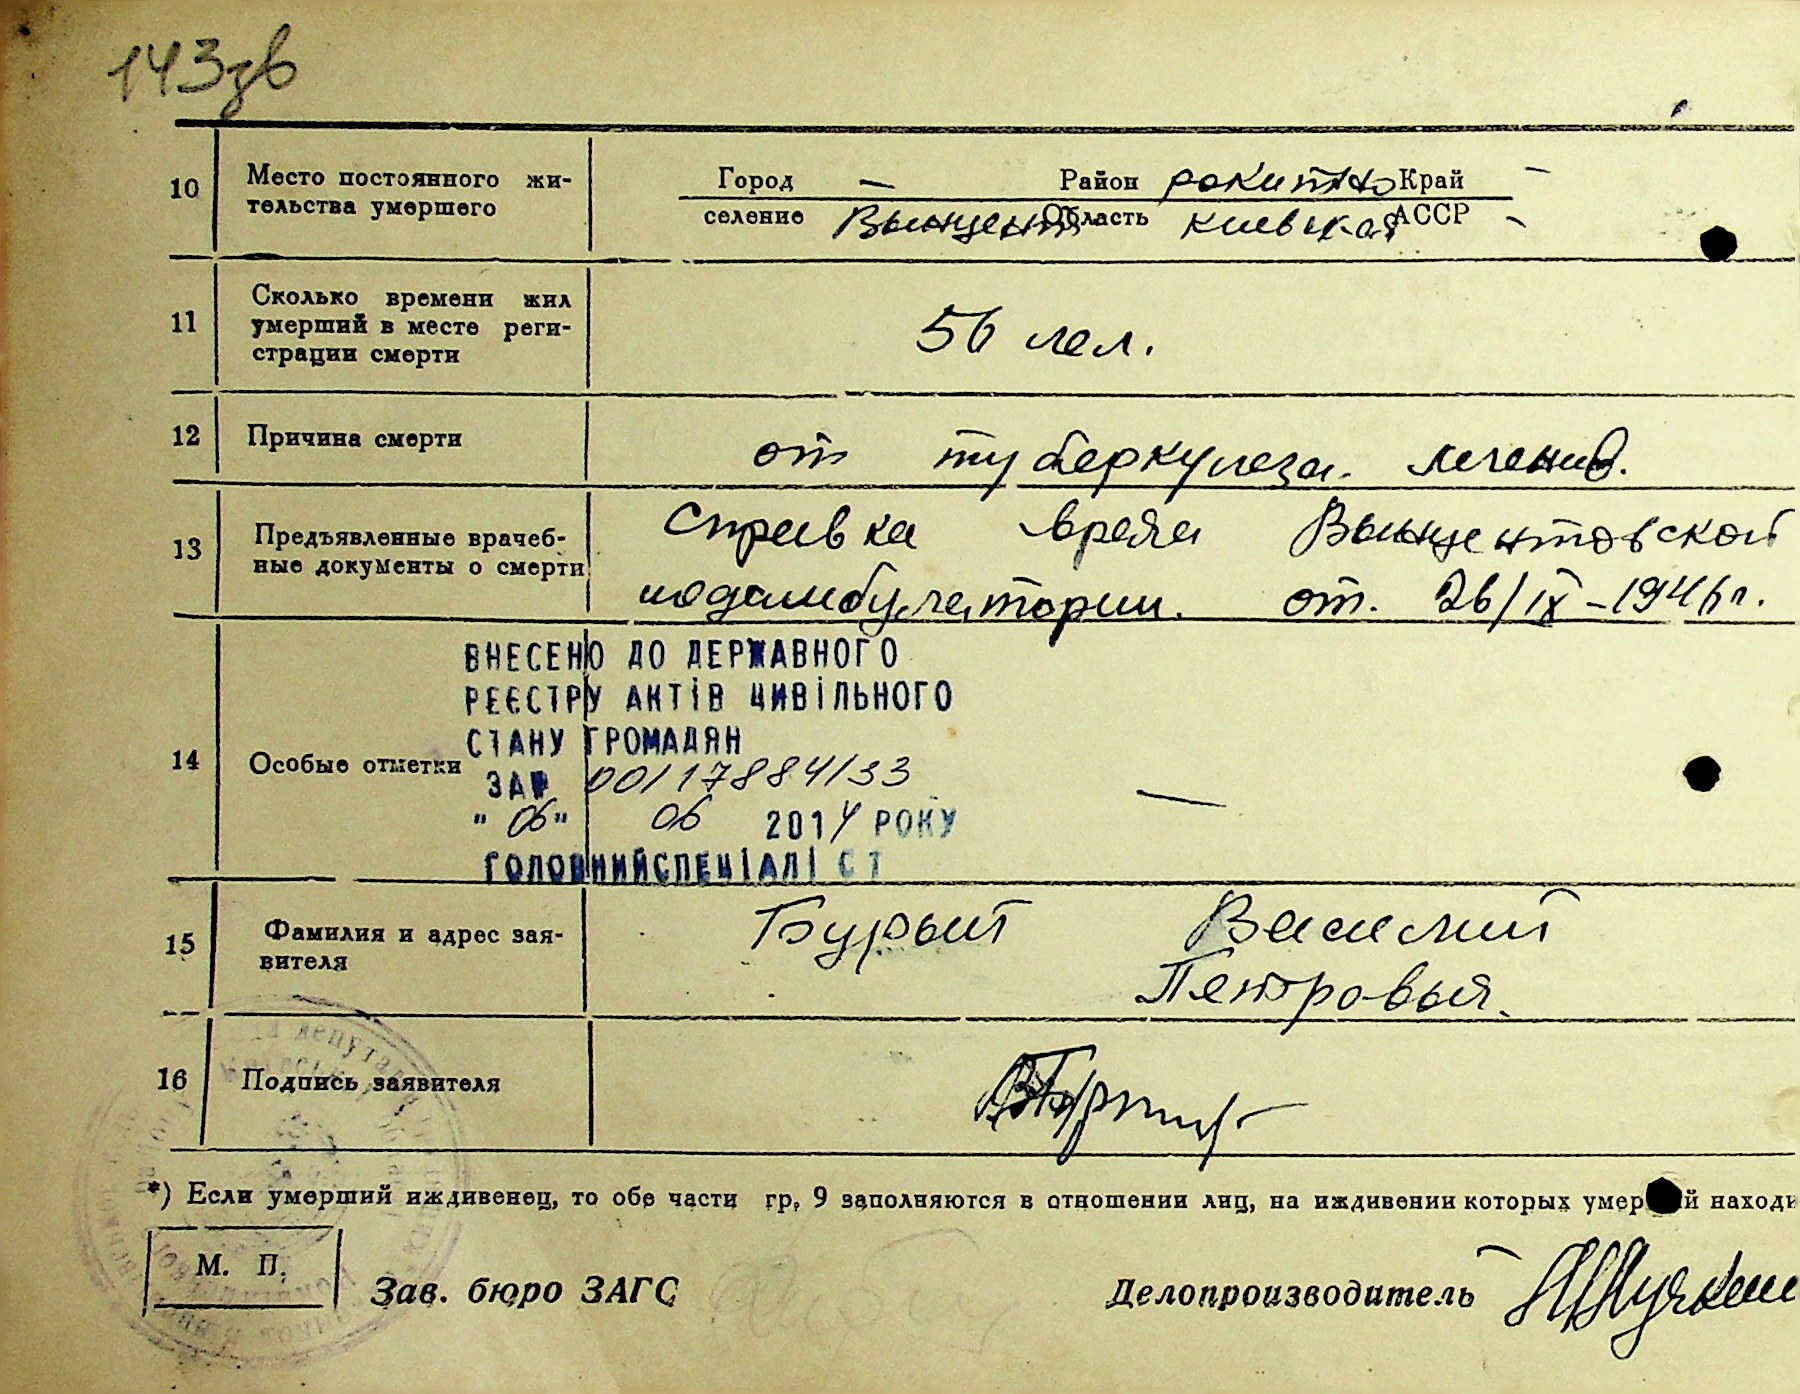 143зв
10 Место постоянного жи-
тельства умершего
Город — Район рокитно Край —
селение Винцент Область киевская АССР -
11 Сколько времени жил
умерший в месте реги-
страции смерти
56 лет.
12 Причина смерти
от туберкулеза легких.
13 Предъявленные врачеб-
ные документы о смерти
Справка врача Винцентовской
медамбулатории. от. 26/IX-1946г.
14 Особые отметки
ВНЕСЕНО ДО ДЕРЖАВНОГО
РЕЄСТРУ АКТІВ ЦИВІЛЬНОГО
СТАНУ ГРОМАДЯН
ЗА № 00117884133
"06" 06 2014 РОКУ
ГОЛОВНИЙ СПЕЦІАЛІСТ
—
15 Фамилия и адрес зая-
вителя
Бурый Василий
Петровыч.
16 Подпись заявителя
*) Если умерший иждивенец, то обе части гр. 9 заполняются в отношении лиц, на иждивении которых умерший находи
М. П.
Зав. бюро ЗАГС
Делопроизводитель